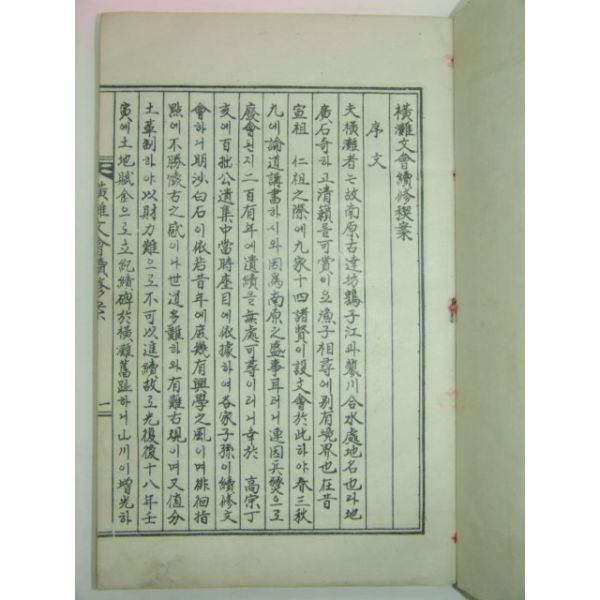 橫灘文會續修稧案
序文
夫橫灘者는故南原古達坊鶉子江과蓼川合水處地名也라地
廣石奇하고淸籟를可賞이오漁子相尋에別有境界也在昔
宣祖 仁祖之際에九家十四諸賢이設文會於此하야春三秋
九에論道講書하시와因爲南原之盛事耳러니連因兵燹으로
廢會된지二百有年에遺績을無處可尋이러니幸於 高宗丁
亥에百拙公遺集中當時座目에依據하여各家子孫이續修文
會하니明沙白石이依若昔年에庶幾有興學之風이며徘徊指
點에不勝感古之感이나世道多難하와有難古規이며又值分
土革制하야以財力難으로不可以進續故로光復後十八年壬
寅에土地賦金으로立紀績碑於橫灘舊趾하니山川이增光하
橫灘文會續修案
一